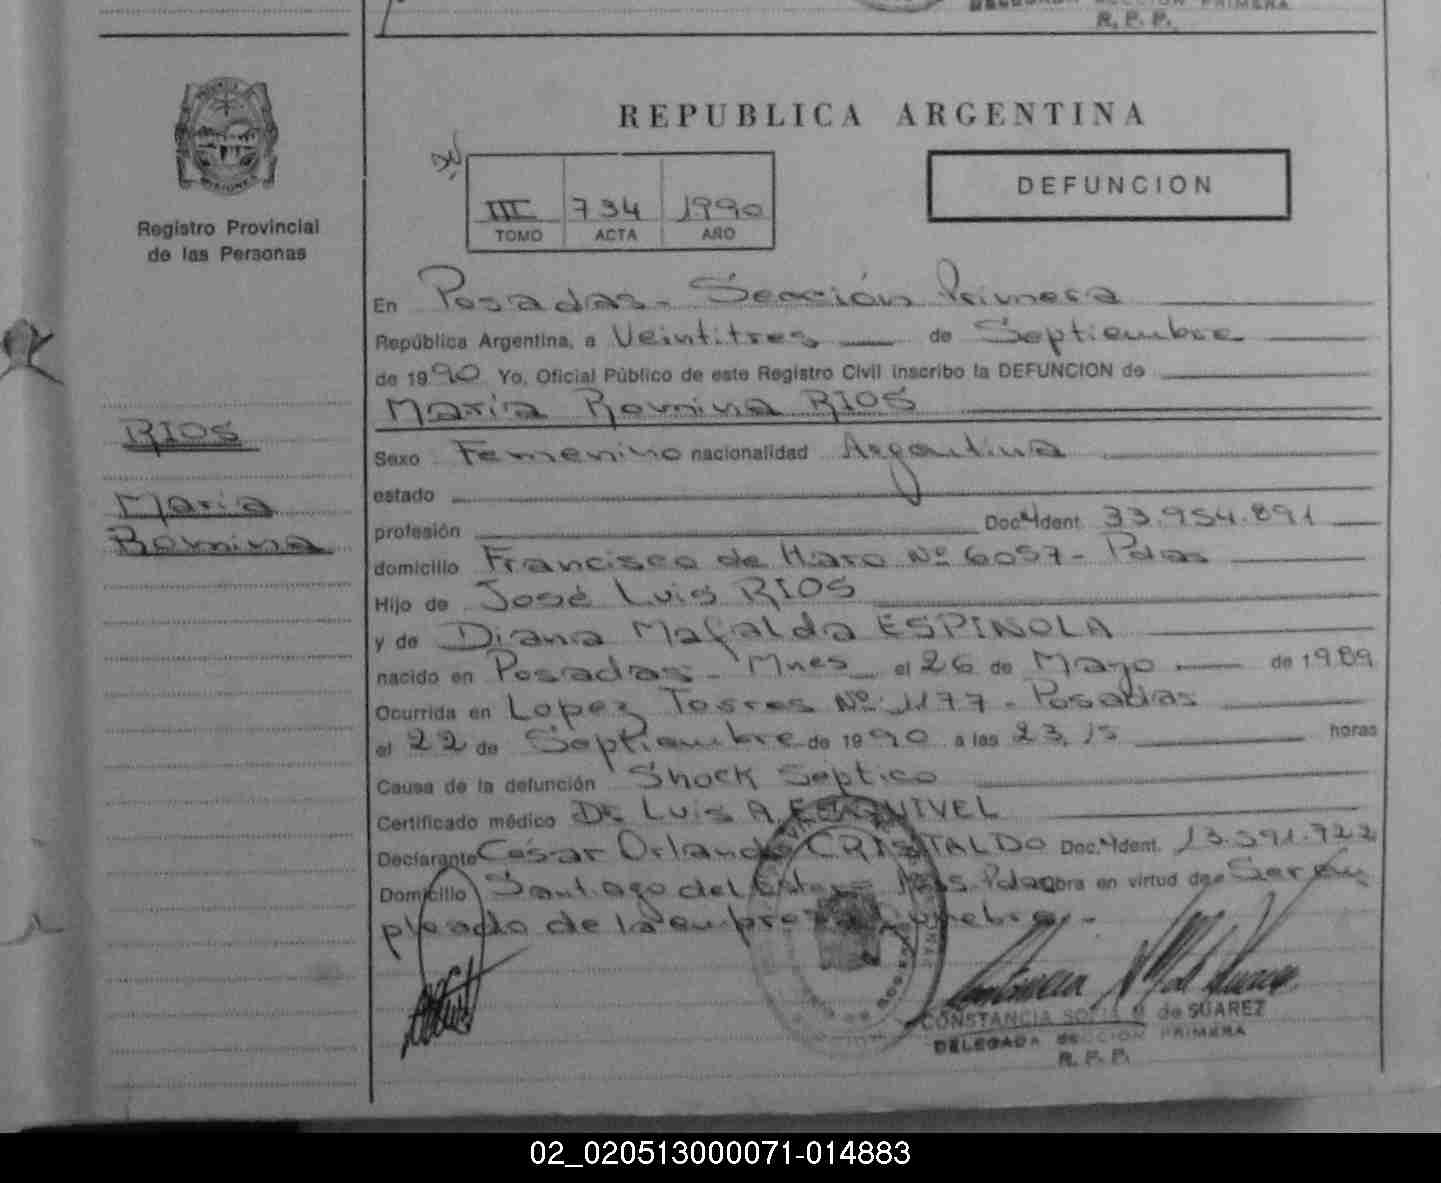 DELEGADA SECCION PRIMERA
R. P. P.
MISIONES
Registro Provincial
de las Personas
RIOS
Maria
Romina
REPUBLICA ARGENTINA
III 734 1990
TOMO ACTA AÑO
DEFUNCION
En Posadas - Sección Primera
República Argentina, a Veintitres de Septiembre
de 1990 Yo, Oficial Público de este Registro Civil inscribo la DEFUNCION de
Maria Romina RIOS
Sexo Femenino nacionalidad Argentina
estado
profesión Doc. Ident. 33.954.891
domicilio Francisco de Haro Nº 6057 - Pdas
Hijo de José Luis RIOS
y de Diana Mafalda ESPINOLA
nacido en Posadas - Mnes el 26 de Mayo de 1989
Ocurrida en Lopez Torres Nº 1177 - Posadas
el 22 de Septiembre de 1990 a las 23,15 horas
Causa de la defunción Shock Septico
Certificado médico Dr Luis A. ESQUIVEL
Declarante Cesar Orlando CRISTALDO Doc. Ident. 13.391.722
Domicilio Santiago del Estero Pdas obra en virtud de Ser em
pleado de la empresa funebre.-
CONSTANCIA SOFIA M de SUAREZ
DELEGADA SECCION PRIMERA
R. P. P.
02_020513000071-014883